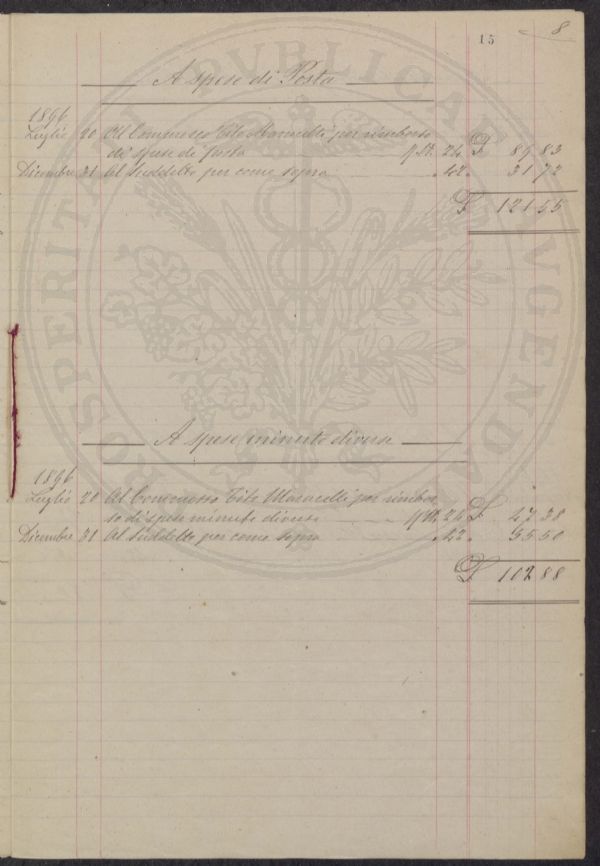 15 8
A spese di Posta
1896
Luglio 20 Al Commesso Tito Marucelli per rimborso
di spese di posta 24 £ 89 83
Dicembre 31 Al suddetto per come sopra " 42 " 31 72
£ 121 55
A spese minute diverse
1896
Luglio 20 Al Commesso Tito Marucelli per rimbor
so di spese minute diverse 24 £ 47 38
Dicembre 31 Al suddetto per come sopra " 42 " 55 50
£ 102 88
PROSPERITATI PVBLICAE AVGENDAE